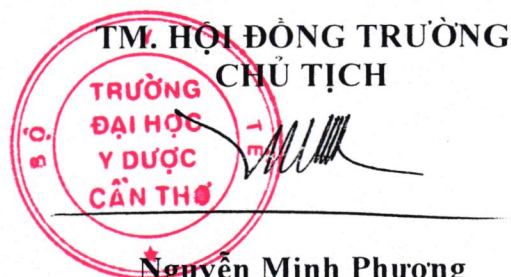 TM. HỘI ĐỒNG TRƯỜNG
CHỦ TỊCH
BỘ Y TẾ
TRƯỜNG
ĐẠI HỌC
Y DƯỢC
CẦN THƠ
Nguyễn Minh Phương